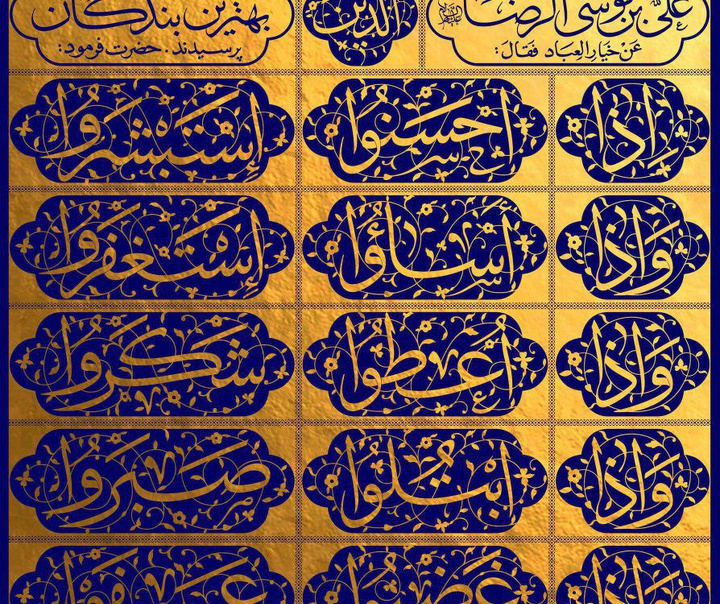 عَلیُّ بن مُوسَی الرضا
عَنْ خیارِ العِبادِ فَقالَ:
الَّذینَ
بهترین بندگان
پرسیدند. حضرت فرمود:
اِذا اَحسَنُوا اِستَبشَرُوا
وَاِذا اَساؤُا اِستَغفَرُوا
وَاِذا اُعطُوا شَکَرُوا
وَاِذا ابتُلُوا صَبَرُوا
وَاِذا غَضِبُوا عَفَوا